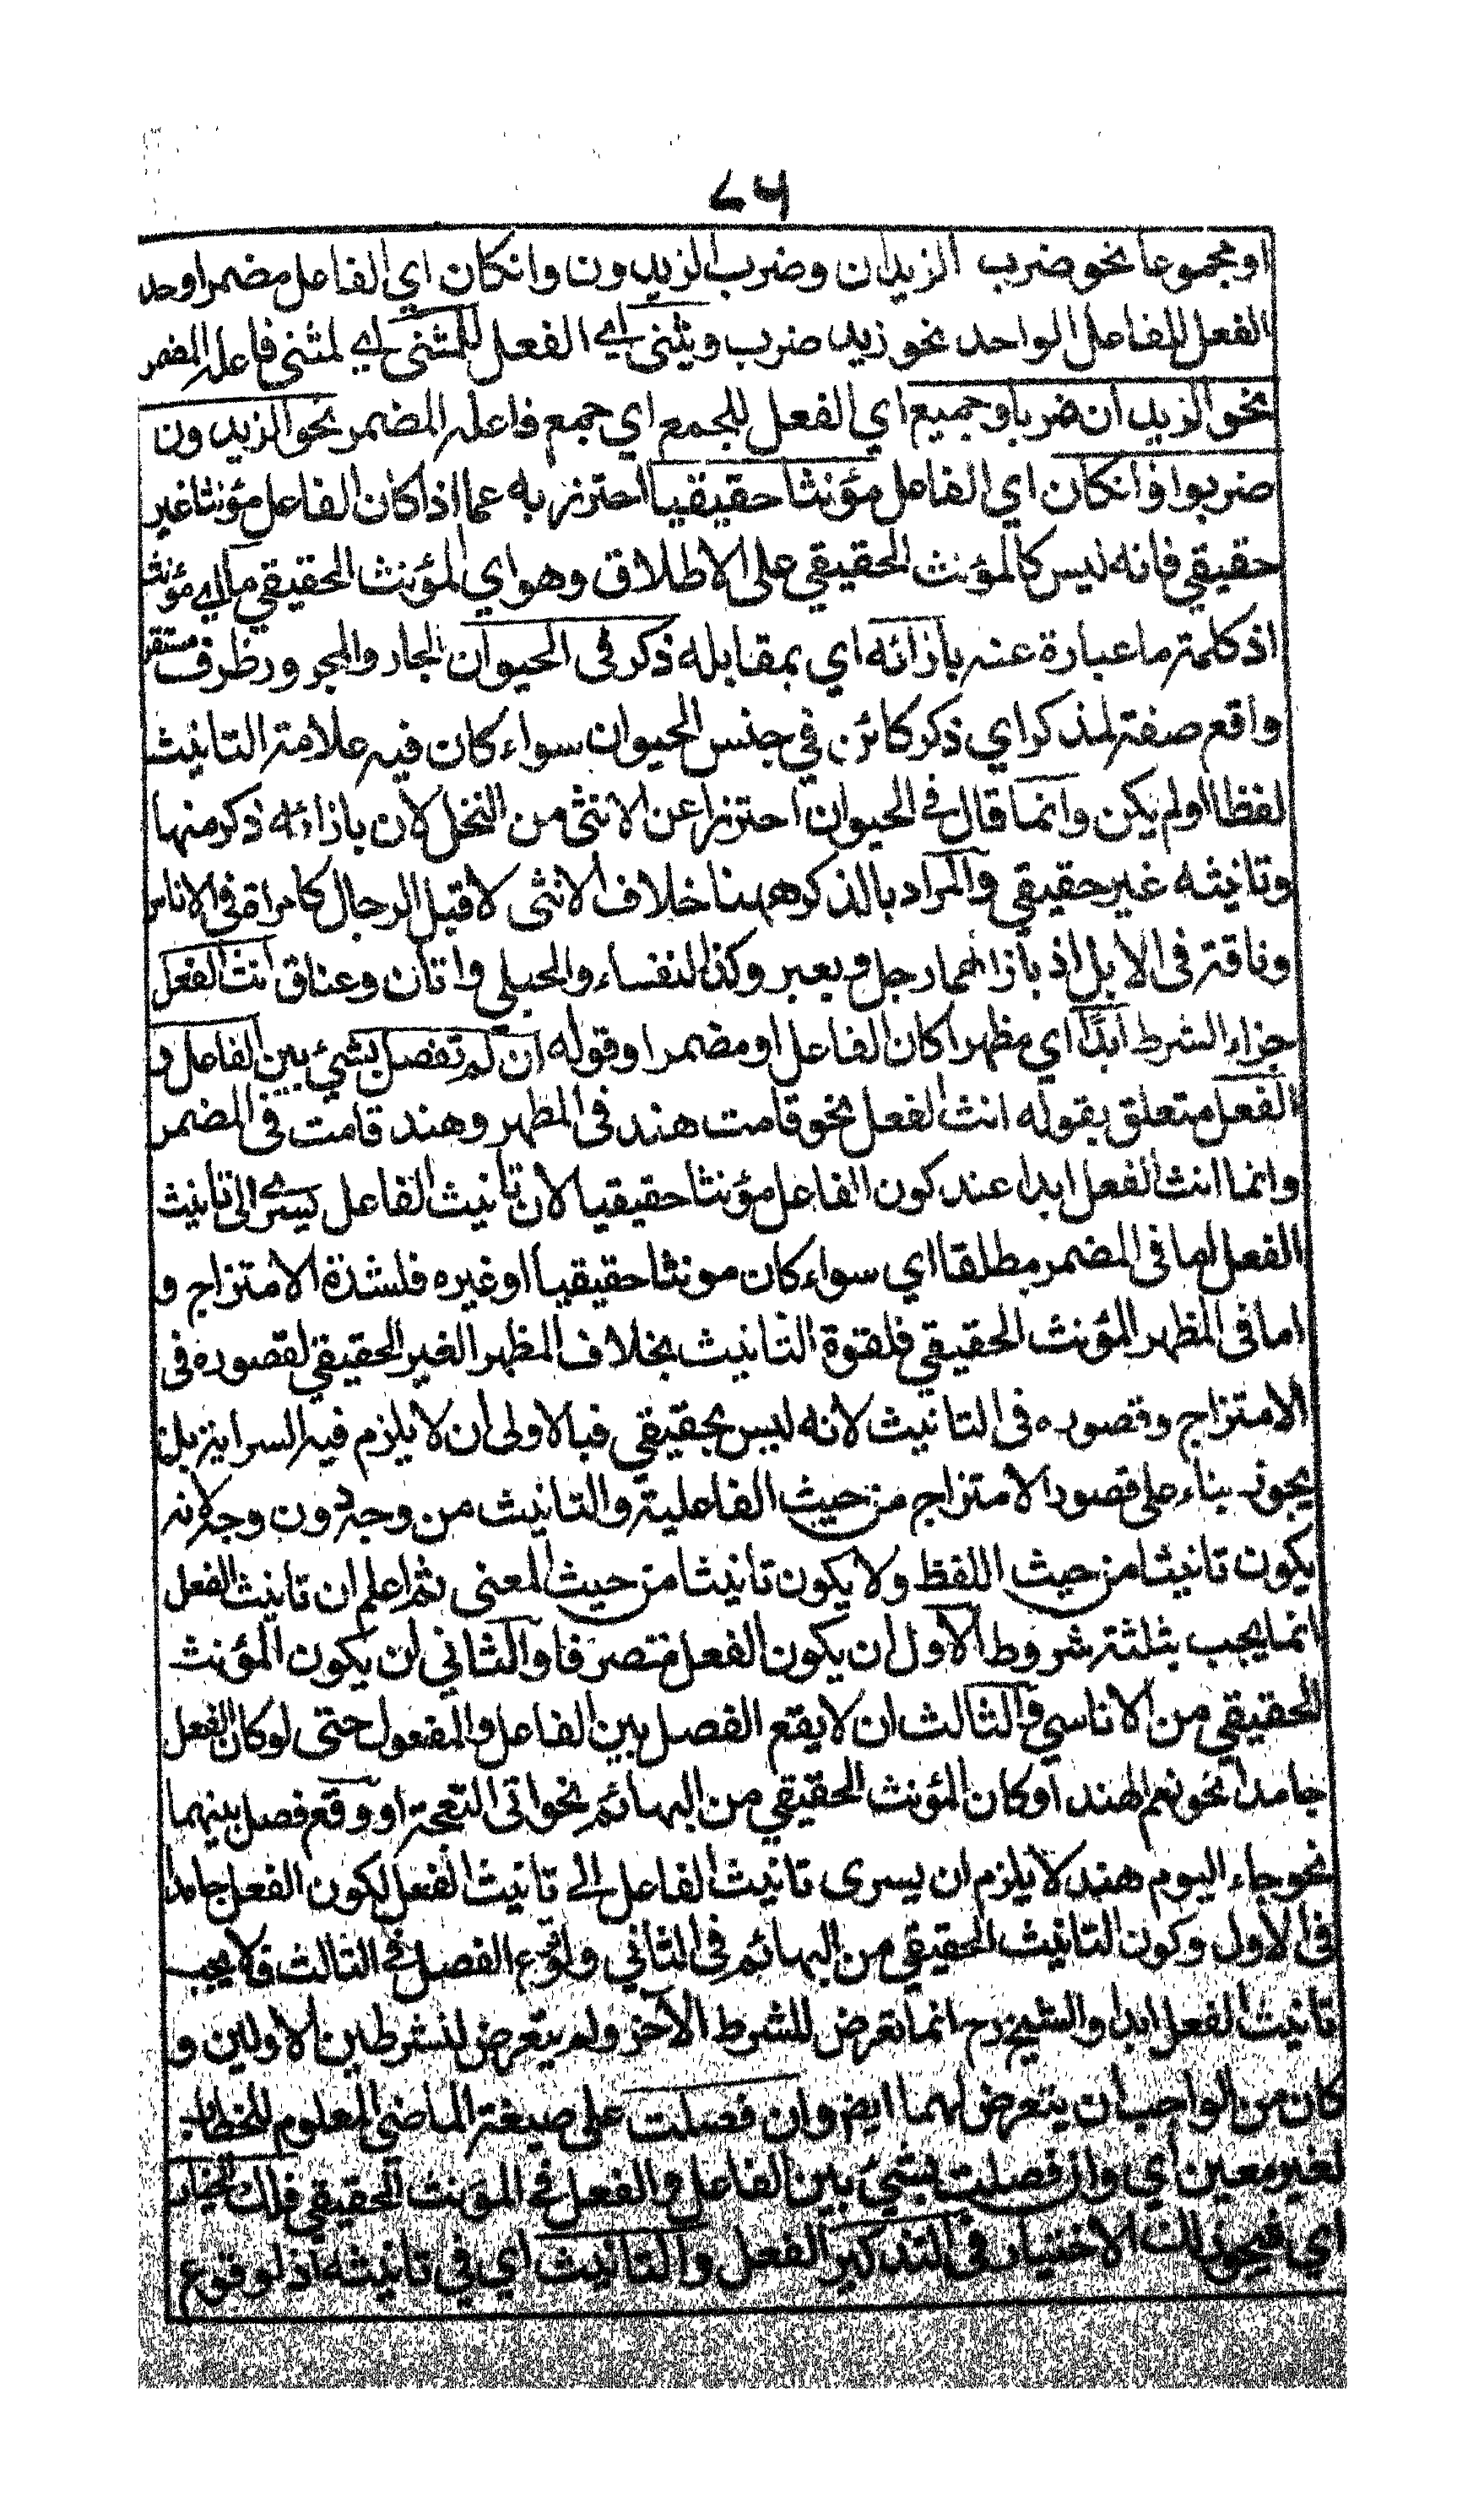 ۷۶
او مجموعا نحو ضرب الزيدان وضرب الزيدون وانكان اي الفاعل مضمرا وحد
الفعل للفاعل الواحد نحو زيد ضرب ويثنى اے الفعل للمثنى اے لمثنى فاعله المضمر
نحو الزيدان ضربا وجميع اي الفعل للجمع اي جمع فاعله المضمر نحو الزيدون
ضربوا وانكان اي الفاعل مؤنثا حقيقيا احترز به عما اذا كان الفاعل مؤنثا غير
حقيقي فانه ليس كالمؤنث الحقيقي على الاطلاق وهو اي المؤنث الحقيقي ما اے مؤنث
اذ كلمة ما عبارة عنه بازائه اي بمقابله ذكر فى الحيوان الجار والمجرور ظرف مستقر
واقع صفة لمذكر اي ذكر كائن في جنس الحيوان سواء كان فيه علامة التانيث
لفظا او لم يكن وانما قال فے الحيوان احترزا عن الانثى من النخل لان بازائه ذكر منها
وتانيثه غير حقيقي والمراد بالذكر ههنا خلاف الانثى لا قبل الرجال كامراة فى الاناس
وناقة فى الابل اذ بازائهما رجل وبعير وكذا النفساء والحبلي واتان وعناق انث الفعل
جزاء الشرط ابدًا اي مظهرا كان الفاعل او مضمرا وقوله ان لم تفصل بشئ بين الفاعل و
الفعل متعلق بقوله انث الفعل نحو قامت هند فى المظهر وهند قامت فى المضمر
وانما انث الفعل ابدا عند كون الفاعل مؤنثا حقيقيا لان تانيث الفاعل يسرے الى تانيث
الفعل اما فى المضمر مطلقا اي سواء كان مونثا حقيقيا او غيره فلشدة الامتزاج و
اما فى المظهر المؤنث الحقيقي فلقوة التانيث بخلاف المظهر الغير الحقيقي لقصوره فى
الامتزاج وقصوره فى التانيث لانه ليس بحقيقي فبالاولى ان لا يلزم فيه السراية بل
يجوز بناء على قصور الامتزاج من حيث الفاعلية والتانيث من وجه دون وجه لانه
يكون تانيثا من حيث اللفظ ولا يكون تانيثا من حيث المعنى ثم اعلم ان تانيث الفعل
انما يجب بثلثة شروط الاول ان يكون الفعل متصرفا والثاني ان يكون المؤنث
الحقيقي من الاناسي والثالث ان لا يقع الفصل بين الفاعل والمفعول حتى لو كان الفعل
جامدا نحو نعم الهند او كان المؤنث الحقيقي من البهائم نحو اتى النعجة او وقع فصل بينهما
نحو جاء اليوم هند لا يلزم ان يسرى تانيث الفاعل الے تانيث الفعل لكون الفعل جامدا
فى الاول وكون التانيث الحقيقي من البهائم فى الثاني ولوقوع الفصل فے الثالث فلا يجب
تانيث الفعل ابدا والشيخ رح انما تعرض للشرط الآخر ولم يتعرض لشرطين الاولين و
كان من الواجب ان يتعرض لهما ايض وان فصلت على صيغة الماضي المعلوم للخطاب
لغير معين اي وان فصلت بشئ بين الفاعل والفعل فے المؤنث الحقيقي فلك الخيار
اي فيجوز لك الاختيار فى التذكير الفعل والتانيث اي في تانيثه اذ لوقوع